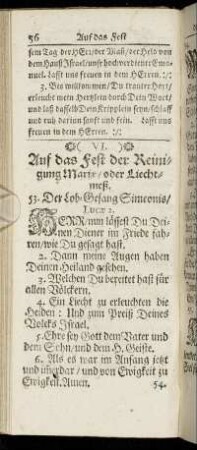 56 Auf das Fest
sem Tag der HErr/der Maß/der Held von
dem Hauß Israel/unse hochverdienet Ema-
nuel. Lasst uns freuen in dem HErren.:/:
3. Bis willkommen/ Du trauter Hort/
erleucht mein Hertzlein durch Dein Wort/
und laß dasselb Dein Kripplein seyn/schlaff
und ruh darinn sanft und rein. Lasst uns
freuen in dem HErren. :/:
( VI. )
Auf das Fest der Reini-
gung Mariæ/oder Liecht-
meß.
53. Der Lob-Gesang Simeonis/
Luc. 2.
HERR/nun lässest Du Dei-
nen Diener im Friede fah-
ren/wie Du gesagt hast.
2. Dann meine Augen haben
Deinen Heiland gesehen.
3. Welchen Du bereitet hast für
allen Völckern.
4. Ein Liecht zu erleuchten die
Heiden: Und zum Preiß Deines
Volcks Israel.
5. Ehre sey Gott dem Vater und
dem Sohn/und dem H. Geiste.
6. Als es war im Anfang jetzt
und iherdar/und von Ewigkeit zu
Ewigkeit. Amen.
54.